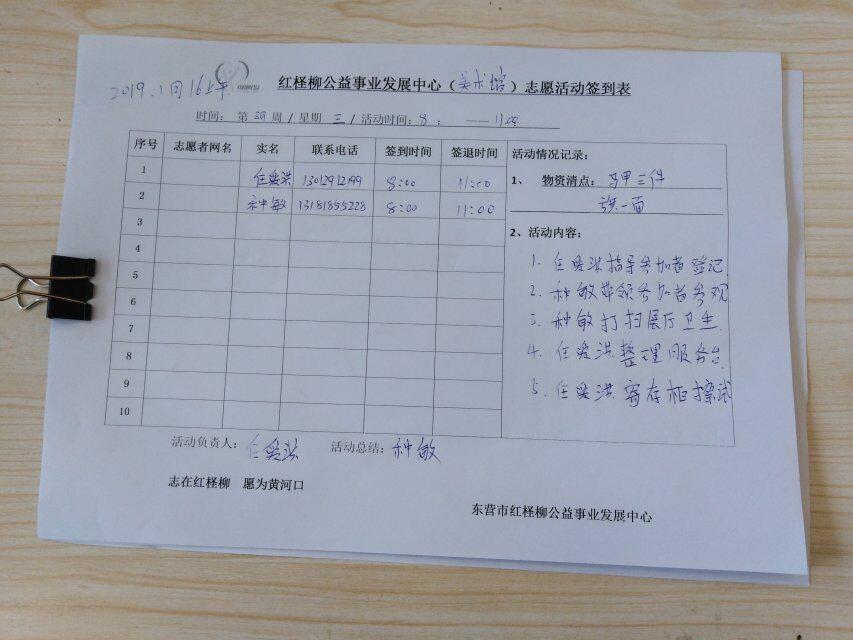 2019.1月16上午
红柽柳公益事业发展中心（美术馆）志愿活动签到表
时间：第 周/星期 三/活动时间：8： ——11:00
序号 志愿者网名 实名 联系电话 签到时间 签退时间
1 任爱洪 13012912199 8:00 11:00
2 种敏 13181855228 8:00 11:00
3
4
5
6
7
8
9
10
活动情况记录：
1、 物资清点：马甲三件
旗一面
2、活动内容：
1. 任爱洪指导参加者登记
2. 种敏带领参加者参观
3. 种敏打扫展厅卫生
4. 任爱洪整理服务台
5. 任爱洪寄存柜擦试
活动负责人：任爱洪 活动总结：种敏
志在红柽柳 愿为黄河口
东营市红柽柳公益事业发展中心